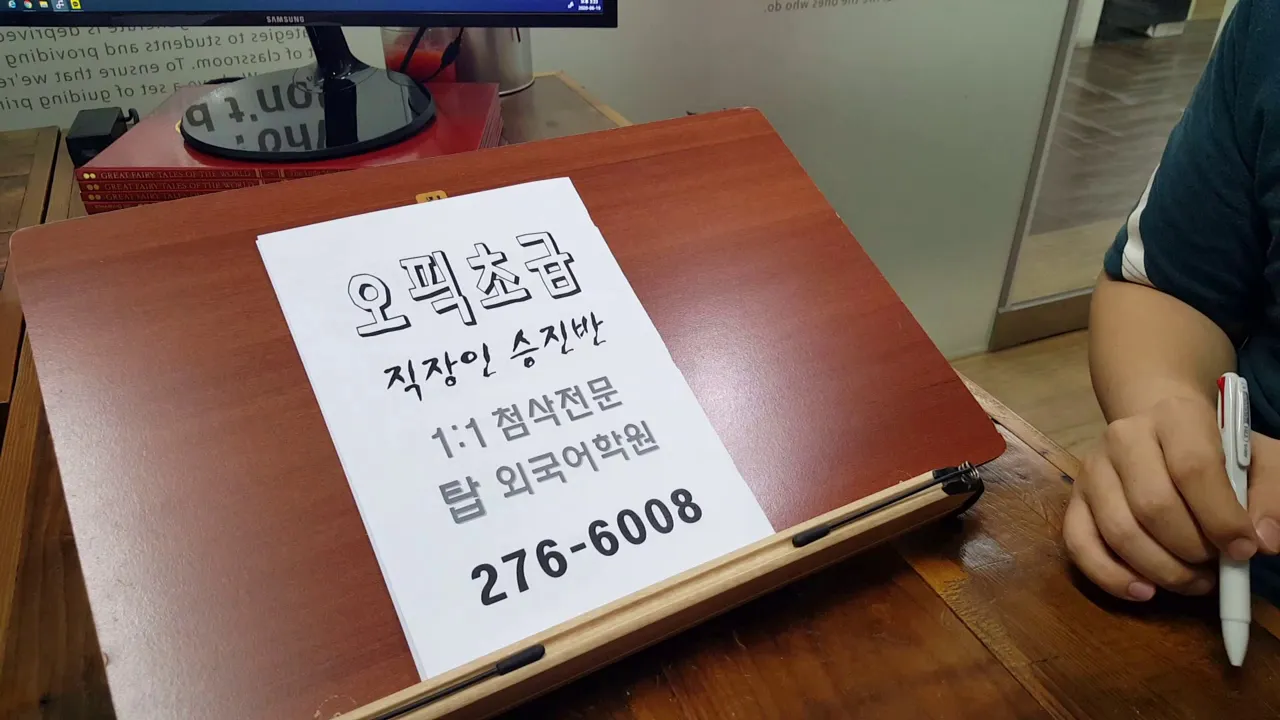 SAMSUNG
tegies to students and providing
t of classroom. To ensure that we're
a set of guiding prin
GREAT FAIRY TALES OF THE WORLD
GREAT FAIRY TALES OF THE WORLD
GREAT FAIRY TALES OF THE WORLD
오픽초급
직장인 승진반
1:1 첨삭전문
탑 외국어학원
276-6008
the ones who do.